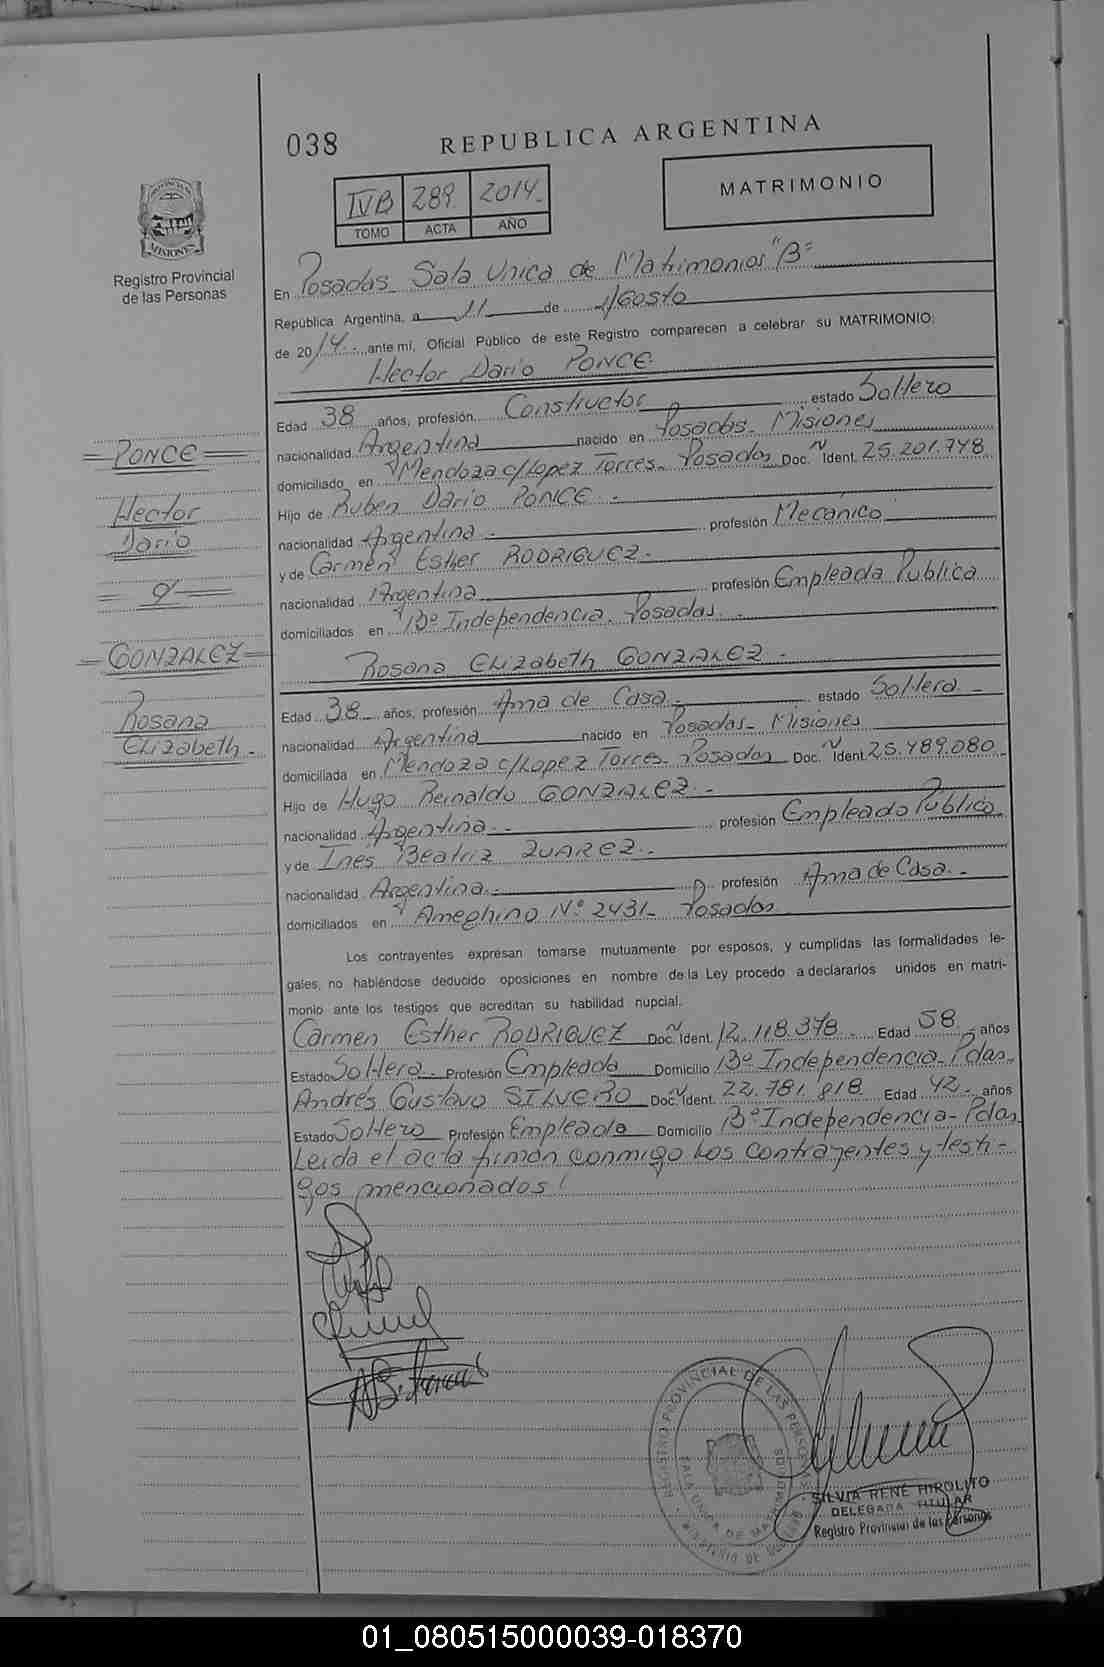 038
REPUBLICA ARGENTINA
IVB 289 2014
TOMO ACTA AÑO
MATRIMONIO
PROVINCIA DE MISIONES
Registro Provincial
de las Personas
En Posadas Sala Unica de Matrimonios "B"
República Argentina, a 11 de Agosto
de 2014 ante mí, Oficial Público de este Registro comparecen a celebrar su MATRIMONIO:
Hector Dario PONCE
Edad 38 años, profesión Constructor estado Soltero
nacionalidad Argentina nacido en Posadas - Misiones
domiciliado en Mendoza c/Lopez Torres - Posadas Doc. N Ident. 25.201.748
Hijo de Ruben Dario PONCE -
nacionalidad Argentina - profesión Mecánico
y de Carmen Esther RODRIGUEZ -
nacionalidad Argentina profesión Empleada Publica
domiciliados en Bº Independencia. Posadas. -
Rosana Elizabeth GONZALEZ -
Edad 38 años, profesión Ama de Casa - estado Soltera -
nacionalidad Argentina nacido en Posadas - Misiones
domiciliada en Mendoza c/Lopez Torres - Posadas Doc. N Ident. 25.489.080
Hijo de Hugo Reinaldo GONZALEZ -
nacionalidad Argentina - profesión Empleado Público
y de Ines Beatriz ZUAREZ -
nacionalidad Argentina - profesión Ama de Casa -
domiciliados en Ameghino Nº 2431 - Posadas
Los contrayentes expresan tomarse mutuamente por esposos, y cumplidas las formalidades le-
gales, no habiéndose deducido oposiciones en nombre de la Ley procedo a declararlos unidos en matri-
monio ante los testigos que acreditan su habilidad nupcial.
Carmen Esther RODRIGUEZ Doc. N Ident. 12.118.378 - Edad 58 años
Estado Soltera - Profesión Empleada Domicilio Bº Independencia - Pdas -
Andrés Gustavo SILVERO Doc. N Ident. 22.781.818 Edad 42 - años
Estado Soltero Profesión Empleado Domicilio Bº Independencia - Pdas
Leida el acta firman conmigo los contrayentes y testi-
gos mencionados
= PONCE =
Hector
Dario
= y =
= GONZALEZ =
Rosana
Elizabeth -
REGISTRO PROVINCIAL DE LAS PERSONAS
SALA UNICA DE MATRIMONIOS
MINISTERIO DE GOBIERNO
SILVIA RENÉ HIPOLITO
DELEGADA TITULAR
Registro Provincial de las Personas
01_080515000039-018370